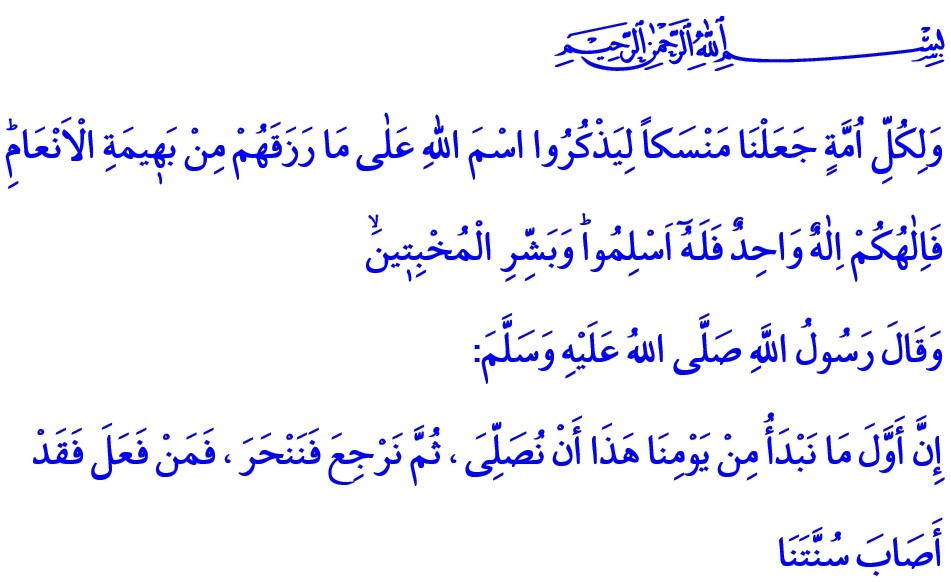 بِسْمِ اللهِ الرَّحْمٰنِ الرَّحِيمِ
وَلِكُلِّ اُمَّةٍ جَعَلْنَا مَنْسَكاً لِيَذْكُرُوا اسْمَ اللهِ عَلٰى مَا رَزَقَهُمْ مِنْ بَهٖيمَةِ الْاَنْعَامِۜ
فَاِلٰهُكُمْ اِلٰهٌ وَاحِدٌ فَلَهُٓ اَسْلِمُواۜ وَبَشِّرِ الْمُخْبِتٖينَۙ
وَقَالَ رَسُولُ اللَّهِ صَلَّى اللهُ عَلَيْهِ وَسَلَّمَ:
إِنَّ أَوَّلَ مَا نَبْدَأُ مِنْ يَوْمِنَا هَذَا أَنْ نُصَلِّىَ ، ثُمَّ نَرْجِعَ فَنَنْحَرَ ، فَمَنْ فَعَلَ فَقَدْ
أَصَابَ سُنَّتَنَا